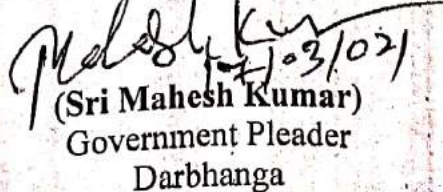 Mahesh Kumar
(Sri Mahesh Kumar)
Government Pleader
Darbhanga